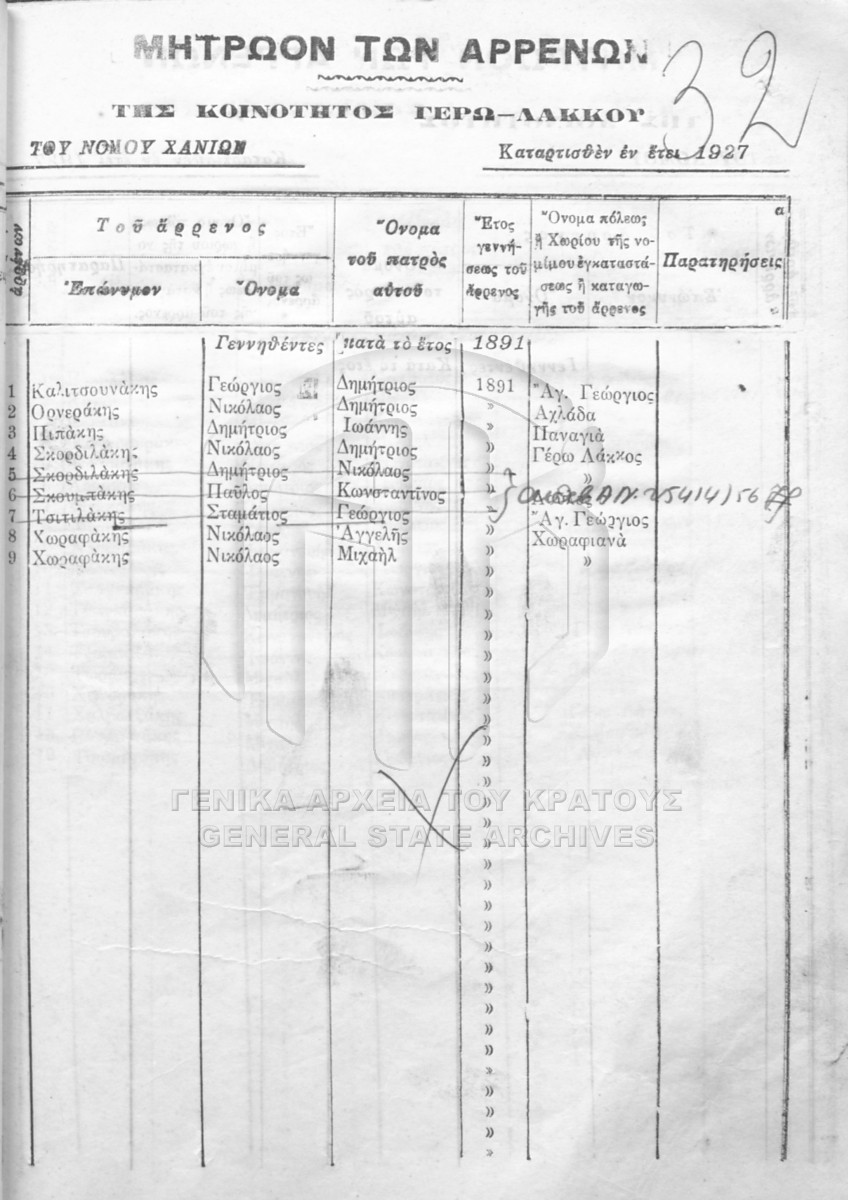 ΜΗΤΡΩΟΝ ΤΩΝ ΑΡΡΕΝΩΝ
32
ΤΗΣ ΚΟΙΝΟΤΗΤΟΣ ΓΕΡΩ—ΛΑΚΚΟΥ
ΤΟΥ ΝΟΜΟΥ ΧΑΝΙΩΝ
Καταρτισθὲν ἐν ἔτει 1927
ἀρρένων
Τοῦ ἄρρενος
Ἐπώνυμον
Ὄνομα
Ὄνομα
τοῦ πατρὸς
αὐτοῦ
Ἔτος
γεννή-
σεως τοῦ
ἄρρενος
Ὄνομα πόλεως
ἢ Χωρίου τῆς νο-
μίμου ἐγκαταστά-
σεως ἢ καταγω-
γῆς τοῦ ἄρρενος
Παρατηρήσεις
Γεννηθέντες κατὰ τὸ ἔτος 1891
1 Καλιτσουνάκης Γεώργιος Δημήτριος 1891 Ἁγ. Γεώργιος
2 Ορνεράκης Νικόλαος Δημήτριος » Αχλάδα
3 Πιπάκης Δημήτριος Ιωάννης » Παναγιὰ
4 Σκορδιλάκης Νικόλαος Δημήτριος » Γέρω Λάκκος
5 Σκορδιλάκης Δημήτριος Νικόλαος » »
6 Σκουμπάκης Παῦλος Κωνσταντῖνος » 25414)56
7 Τσιτιλάκης Σταμάτιος Γεώργιος » Ἁγ. Γεώργιος
8 Χωραφάκης Νικόλαος Ἀγγελῆς » Χωραφιανὰ
9 Χωραφάκης Νικόλαος Μιχαὴλ » »
ΓΕΝΙΚΑ ΑΡΧΕΙΑ ΤΟΥ ΚΡΑΤΟΥΣ
GENERAL STATE ARCHIVES